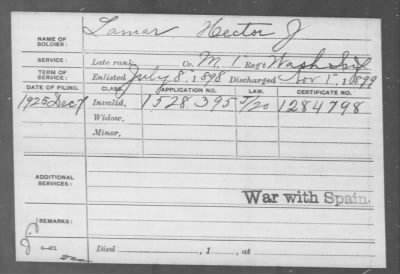 NAME OF SOLDIER: Lamar Hector J
SERVICE: Late rank, Co. M, 1" Reg't Wash Inf
TERM OF SERVICE: Enlisted July 8", 1898 Discharged Nov 1", 1899
DATE OF FILING. CLASS. APPLICATION NO. LAW. CERTIFICATE NO.
1925 Dec 7 Invalid, 1528395 5/20 1284798
Widow,
Minor,
ADDITIONAL SERVICES:
War with Spain.
REMARKS:
Died , 1 , at